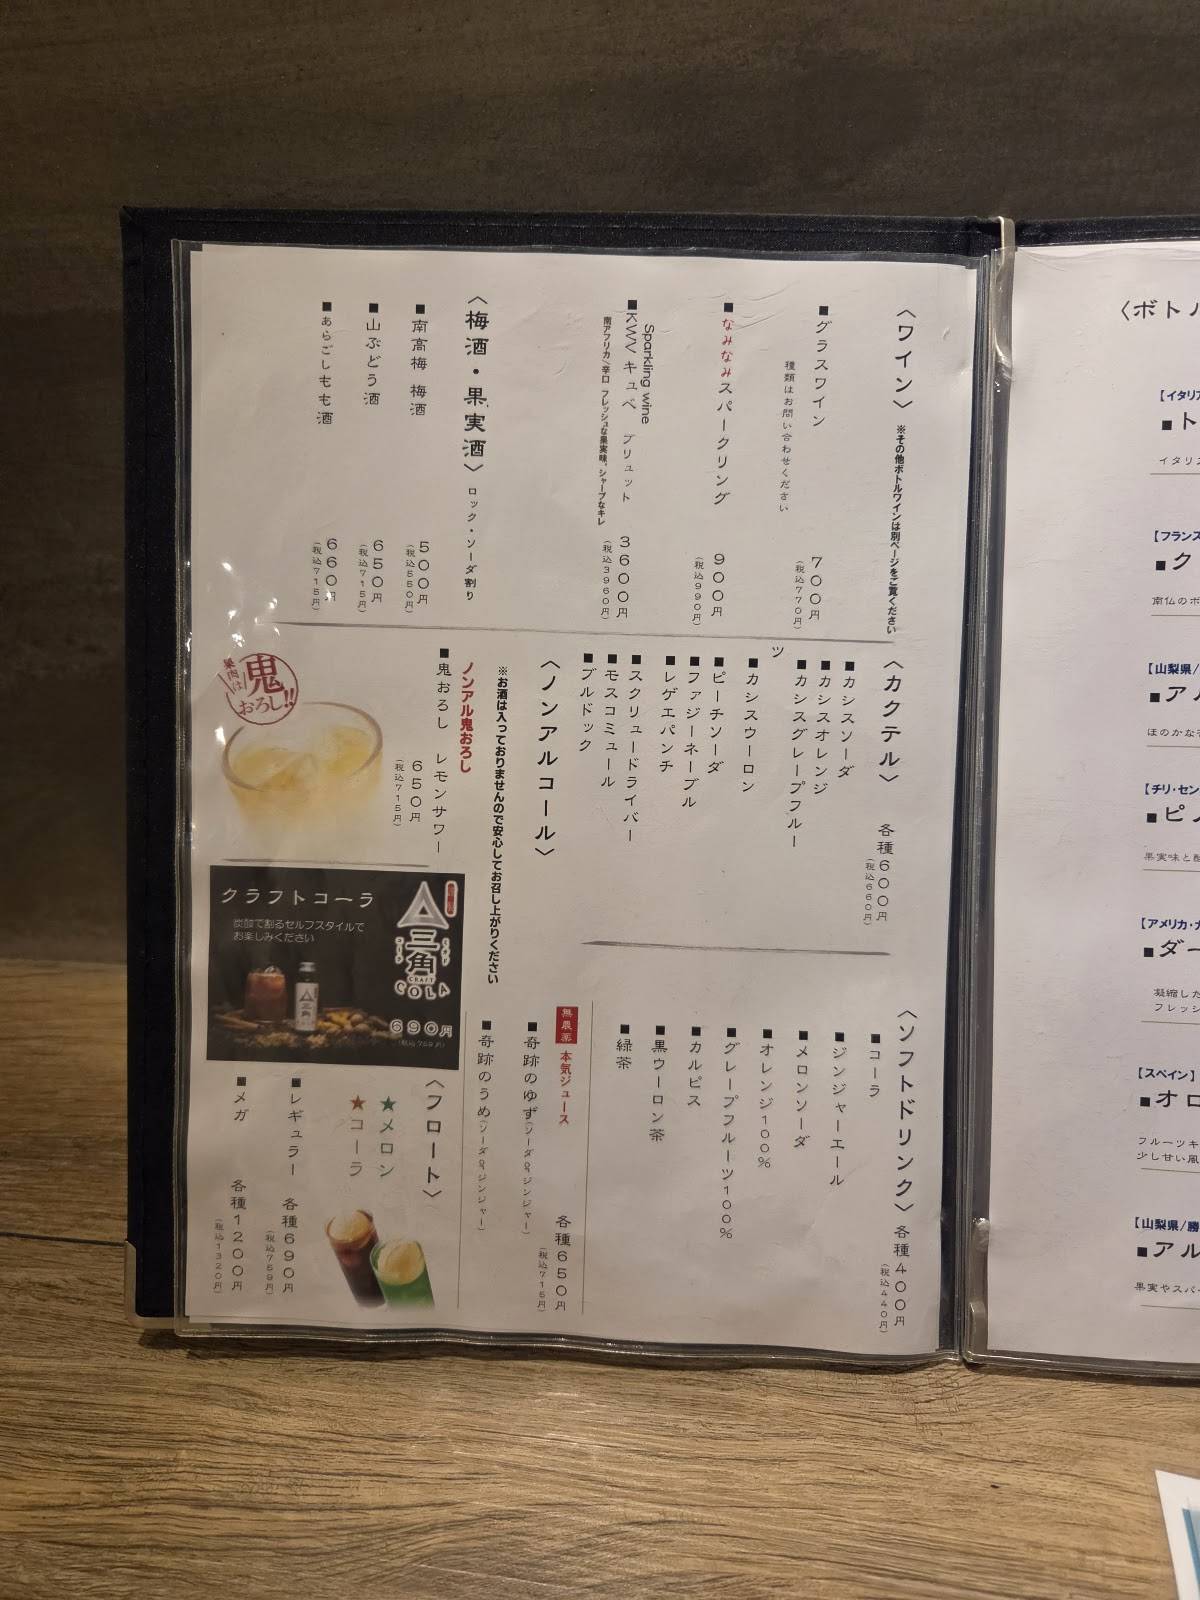 〈ワイン〉 ※その他ボトルワインは別ページをご覧ください
■グラスワイン 700円
(税込770円)
種類はお問い合わせください
■なみなみスパークリング 900円
(税込990円)
Sparkling wine
■KWV キュベ ブリュット 3600円
(税込3960円)
南アフリカ/辛口 フレッシュな果実味、シャープなキレ
〈梅酒・果実酒〉 ロック・ソーダ割り
■南高梅 梅酒 500円
(税込550円)
■山ぶどう酒 650円
(税込715円)
■あらごしもも酒 660円
(税込715円)
〈カクテル〉 各種600円
(税込660円)
■カシスソーダ
■カシスオレンジ
■カシスグレープフルー
ツ
■カシスウーロン
■ピーチソーダ
■ファジーネーブル
■レゲエパンチ
■スクリュードライバー
■モスコミュール
■ブルドック
〈ノンアルコール〉
※お酒は入っておりませんので安心してお召し上がりください
ノンアル鬼おろし
■鬼おろし レモンサワー
650円
(税込715円)
果肉は
鬼
おろし!!
クラフトコーラ
炭酸で割るセルフスタイルで
お楽しみください
三角
CRAFT
COLA
690円
(税込759円)
〈ソフトドリンク〉 各種400円
(税込440円)
■コーラ
■ジンジャーエール
■メロンソーダ
■オレンジ100%
■グレープフルーツ100%
■カルピス
■黒ウーロン茶
■緑茶
無農薬 本気ジュース
各種650円
(税込715円)
■奇跡のゆず(ソーダorジンジャー)
■奇跡のうめ(ソーダorジンジャー)
〈フロート〉
★メロン
★コーラ
■レギュラー 各種690円
(税込759円)
■メガ 各種1200円
(税込1320円)
〈ボトル
【イタリア
■ト
イタリス
【フランス
■ク
南仏のボ
【山梨県/
■アル
ほのかな
【チリ・セン
■ピノ
果実味と酸
【アメリカ・カ
■ダー
凝縮した
フレッシ
【スペイン】
■オロ
フルーツキ
少し甘い風
【山梨県/勝
■アル
果実やスパ